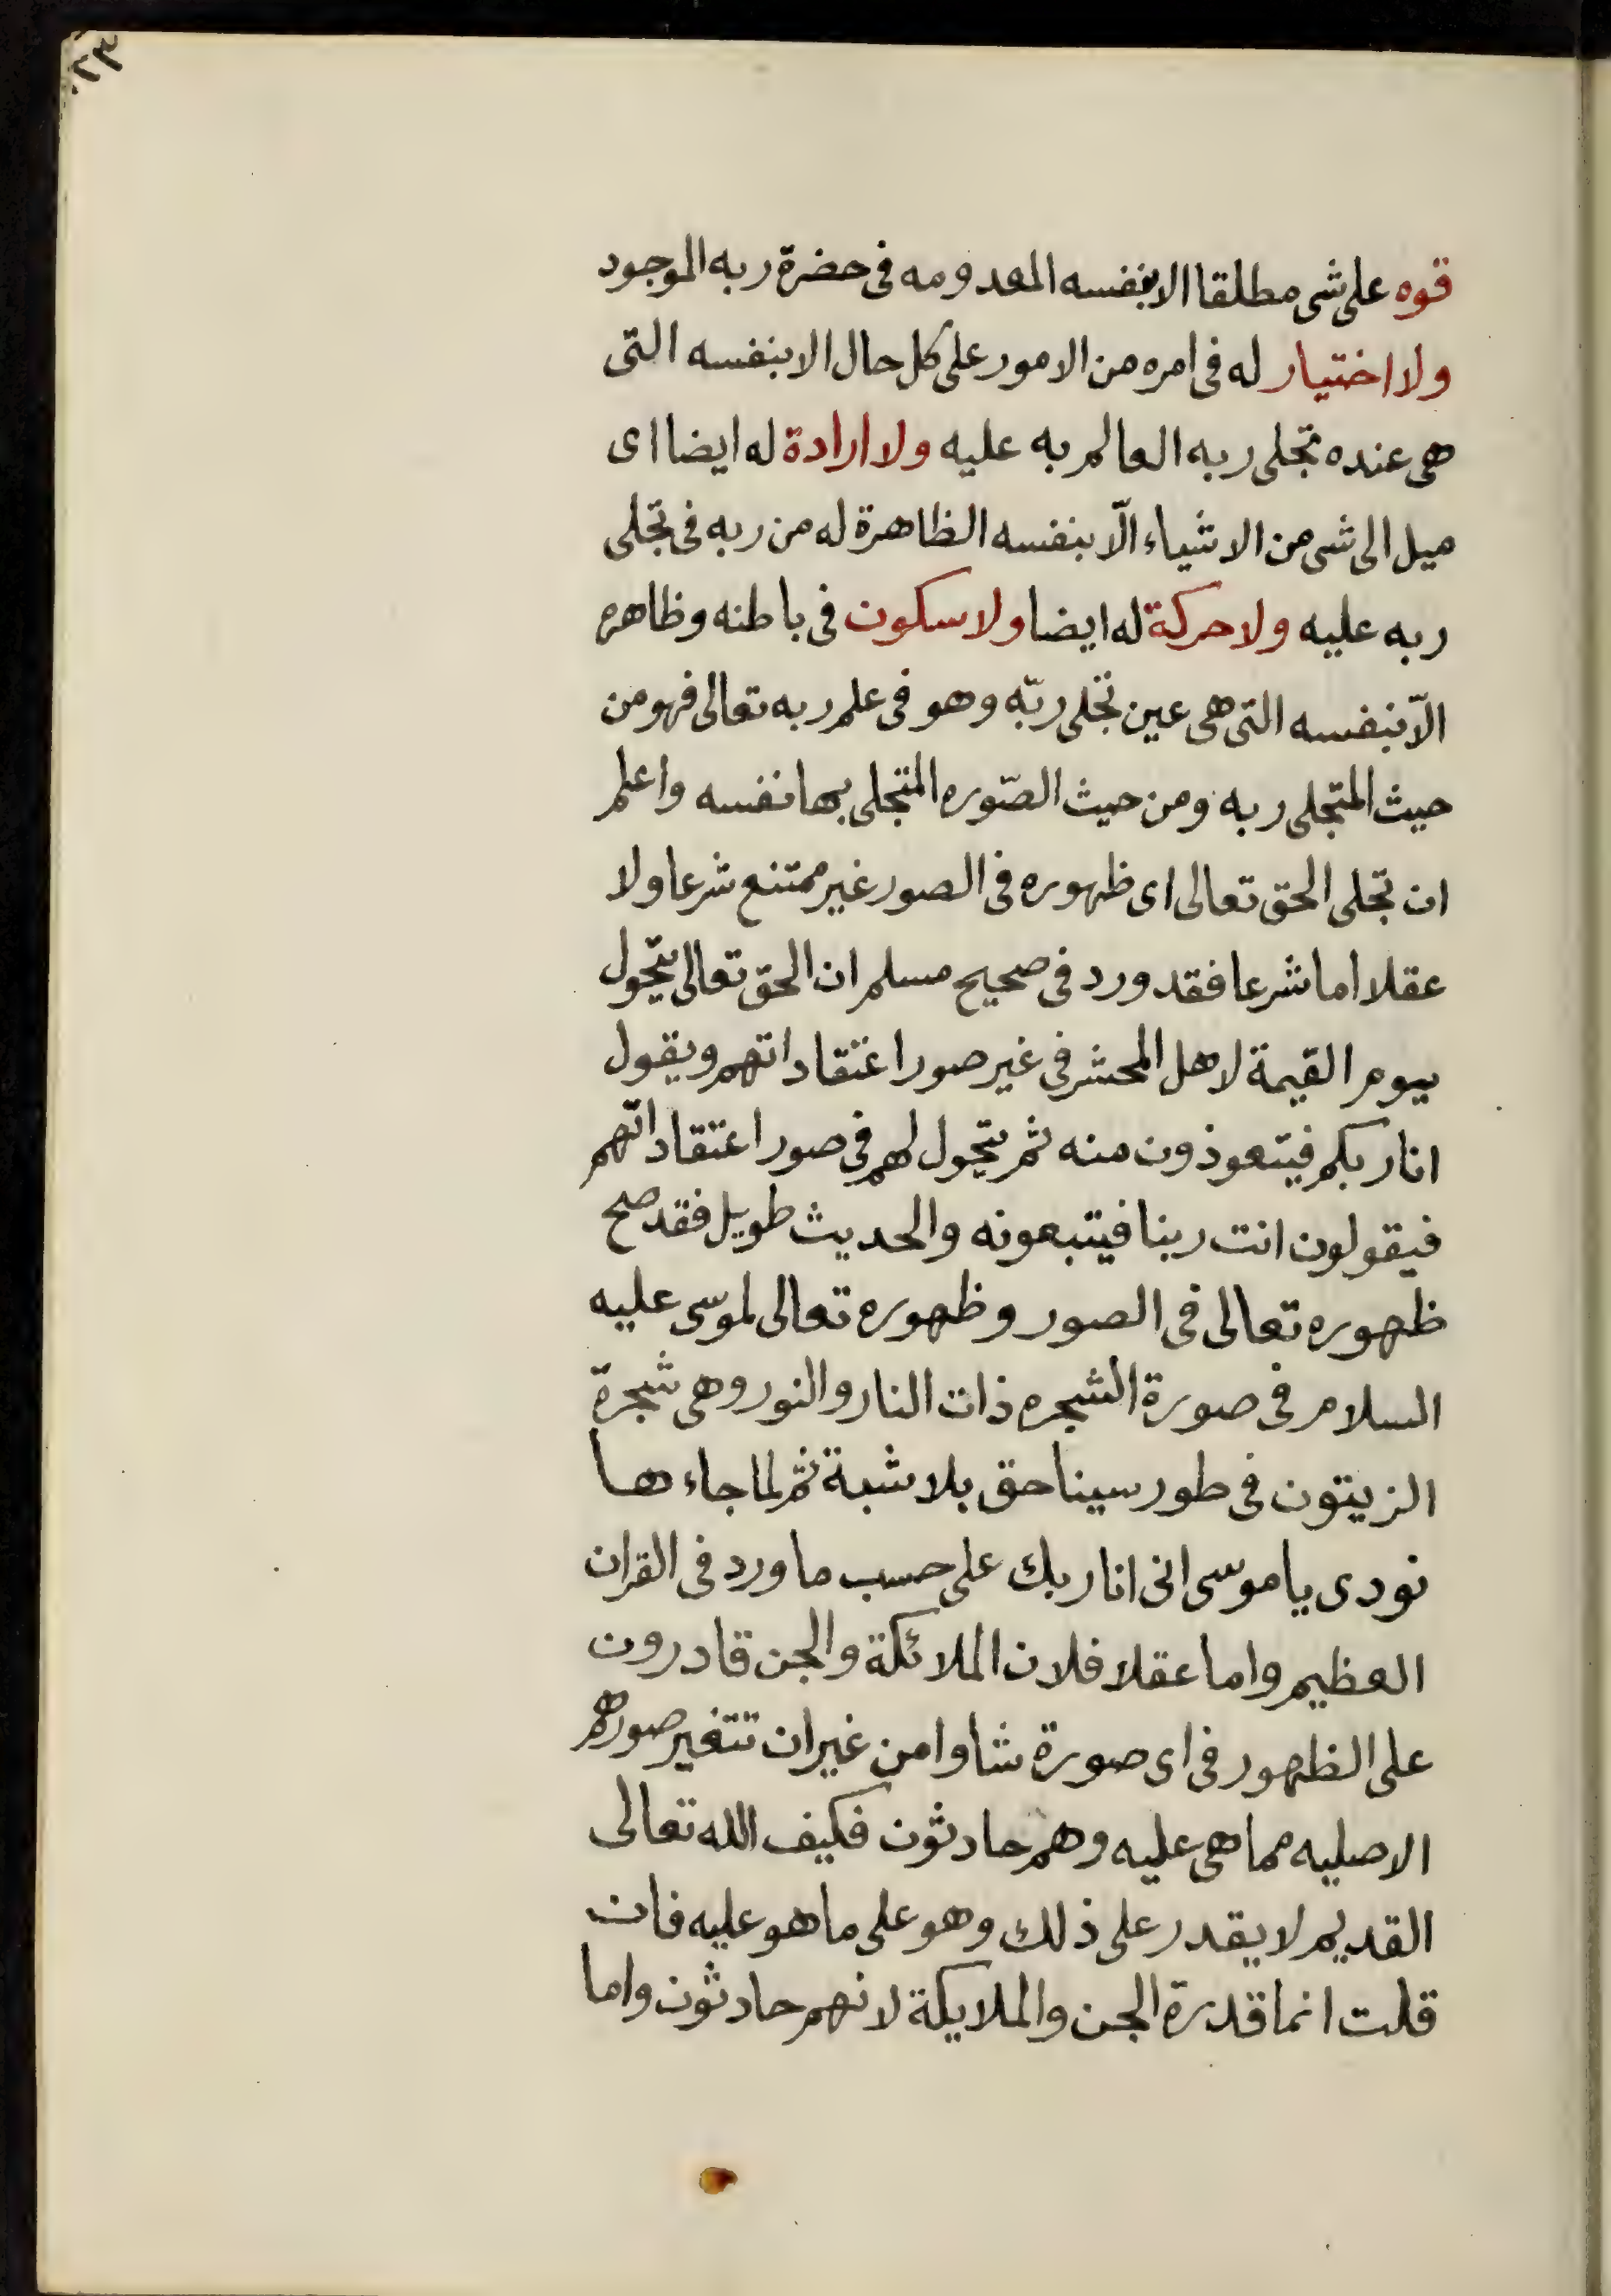 ٢٣
قوه على شى مطلقا الا بنفسه المعدومه فى حضرة ربه الموجود
ولا اختيار له فى امره من الامور على كل حال الا بنفسه التى
هى عنده تجلى ربه العالم به عليه ولا ارادة له ايضا اى
ميل الى شى من الاشياء الّا بنفسه الظاهرة له من ربه فى تجلى
ربه عليه ولا حركة له ايضا ولا سكون فى باطنه وظاهره
الّا بنفسه التى هى عين تجلى ربّه وهو فى علم ربه تعالى فهو من
حيث المتجلى ربه ومن حيث الصّوره المتجلى بها نفسه واعلم
ان تجلى الحق تعالى اى ظهوره فى الصور غير ممتنع شرعا ولا
عقلا اما شرعا فقد ورد فى صحيح مسلم ان الحق تعالى يتحول
يوم القيمة لاهل المحشر فى غير صور اعتقاداتهم ويقول
انا ربكم فيتعوذون منه ثم يتحول لهم فى صور اعتقاداتهم
فيقولون انت ربنا فيتبعونه والحديث طويل فقد صح
ظهوره تعالى فى الصور وظهوره تعالى لموسى عليه
السلام فى صورة الشجره ذات النار والنور وهى شجرة
الزيتون فى طور سينا حق بلا شبة ثم لما جاءها
نودى يا موسى انى انا ربك على حسب ما ورد فى القران
العظيم واما عقلا فلان الملائكة والجن قادرون
على الظهور فى اى صورة شاوا من غير ان تتغير صورهم
الاصليه مما هى عليه وهم حادثون فكيف الله تعالى
القديم لا يقدر على ذلك وهو على ما هو عليه فان
قلت انما قدرة الجن والملايكة لانهم حادثون واما